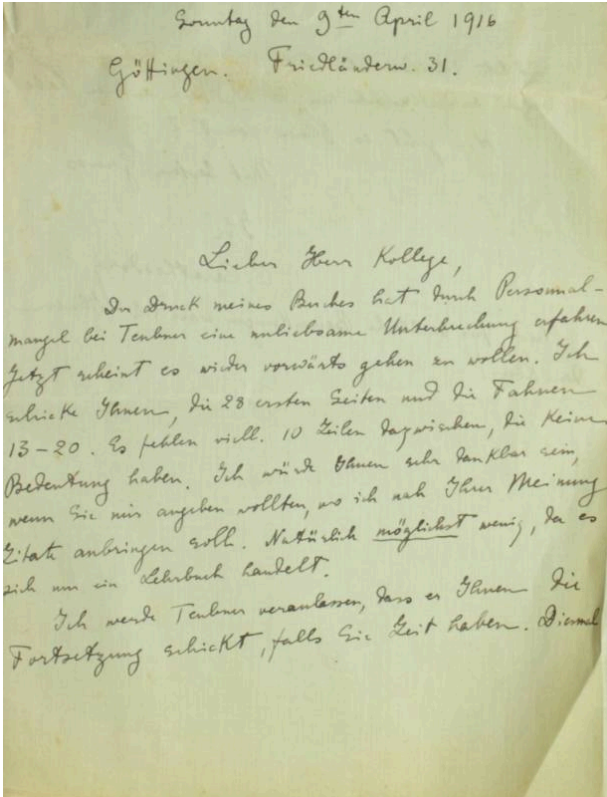 Sonntag den 9ten April 1916
Göttingen. Friedländerw. 31.
Lieber Herr Kollege,
Der Druck meines Buches hat durch Personal-
mangel bei Teubner eine unliebsame Unterbrechung erfahren
Jetzt scheint es wieder vorwärts gehen zu wollen. Ich
schicke Ihnen, die 28 ersten Seiten und die Fahnen
13–20. Es fehlen viell. 10 Zeilen dazwischen, die keine
Bedeutung haben. Ich würde Ihnen sehr dankbar sein,
wenn Sie mir angeben wollten, wo ich nach Ihrer Meinung
Zitate anbringen soll. Natürlich möglichst wenig, da es
sich um ein Lehrbuch handelt.
Ich werde Teubner veranlassen, dass er Ihnen die
Fortsetzung schickt, falls Sie Zeit haben. Diesmal